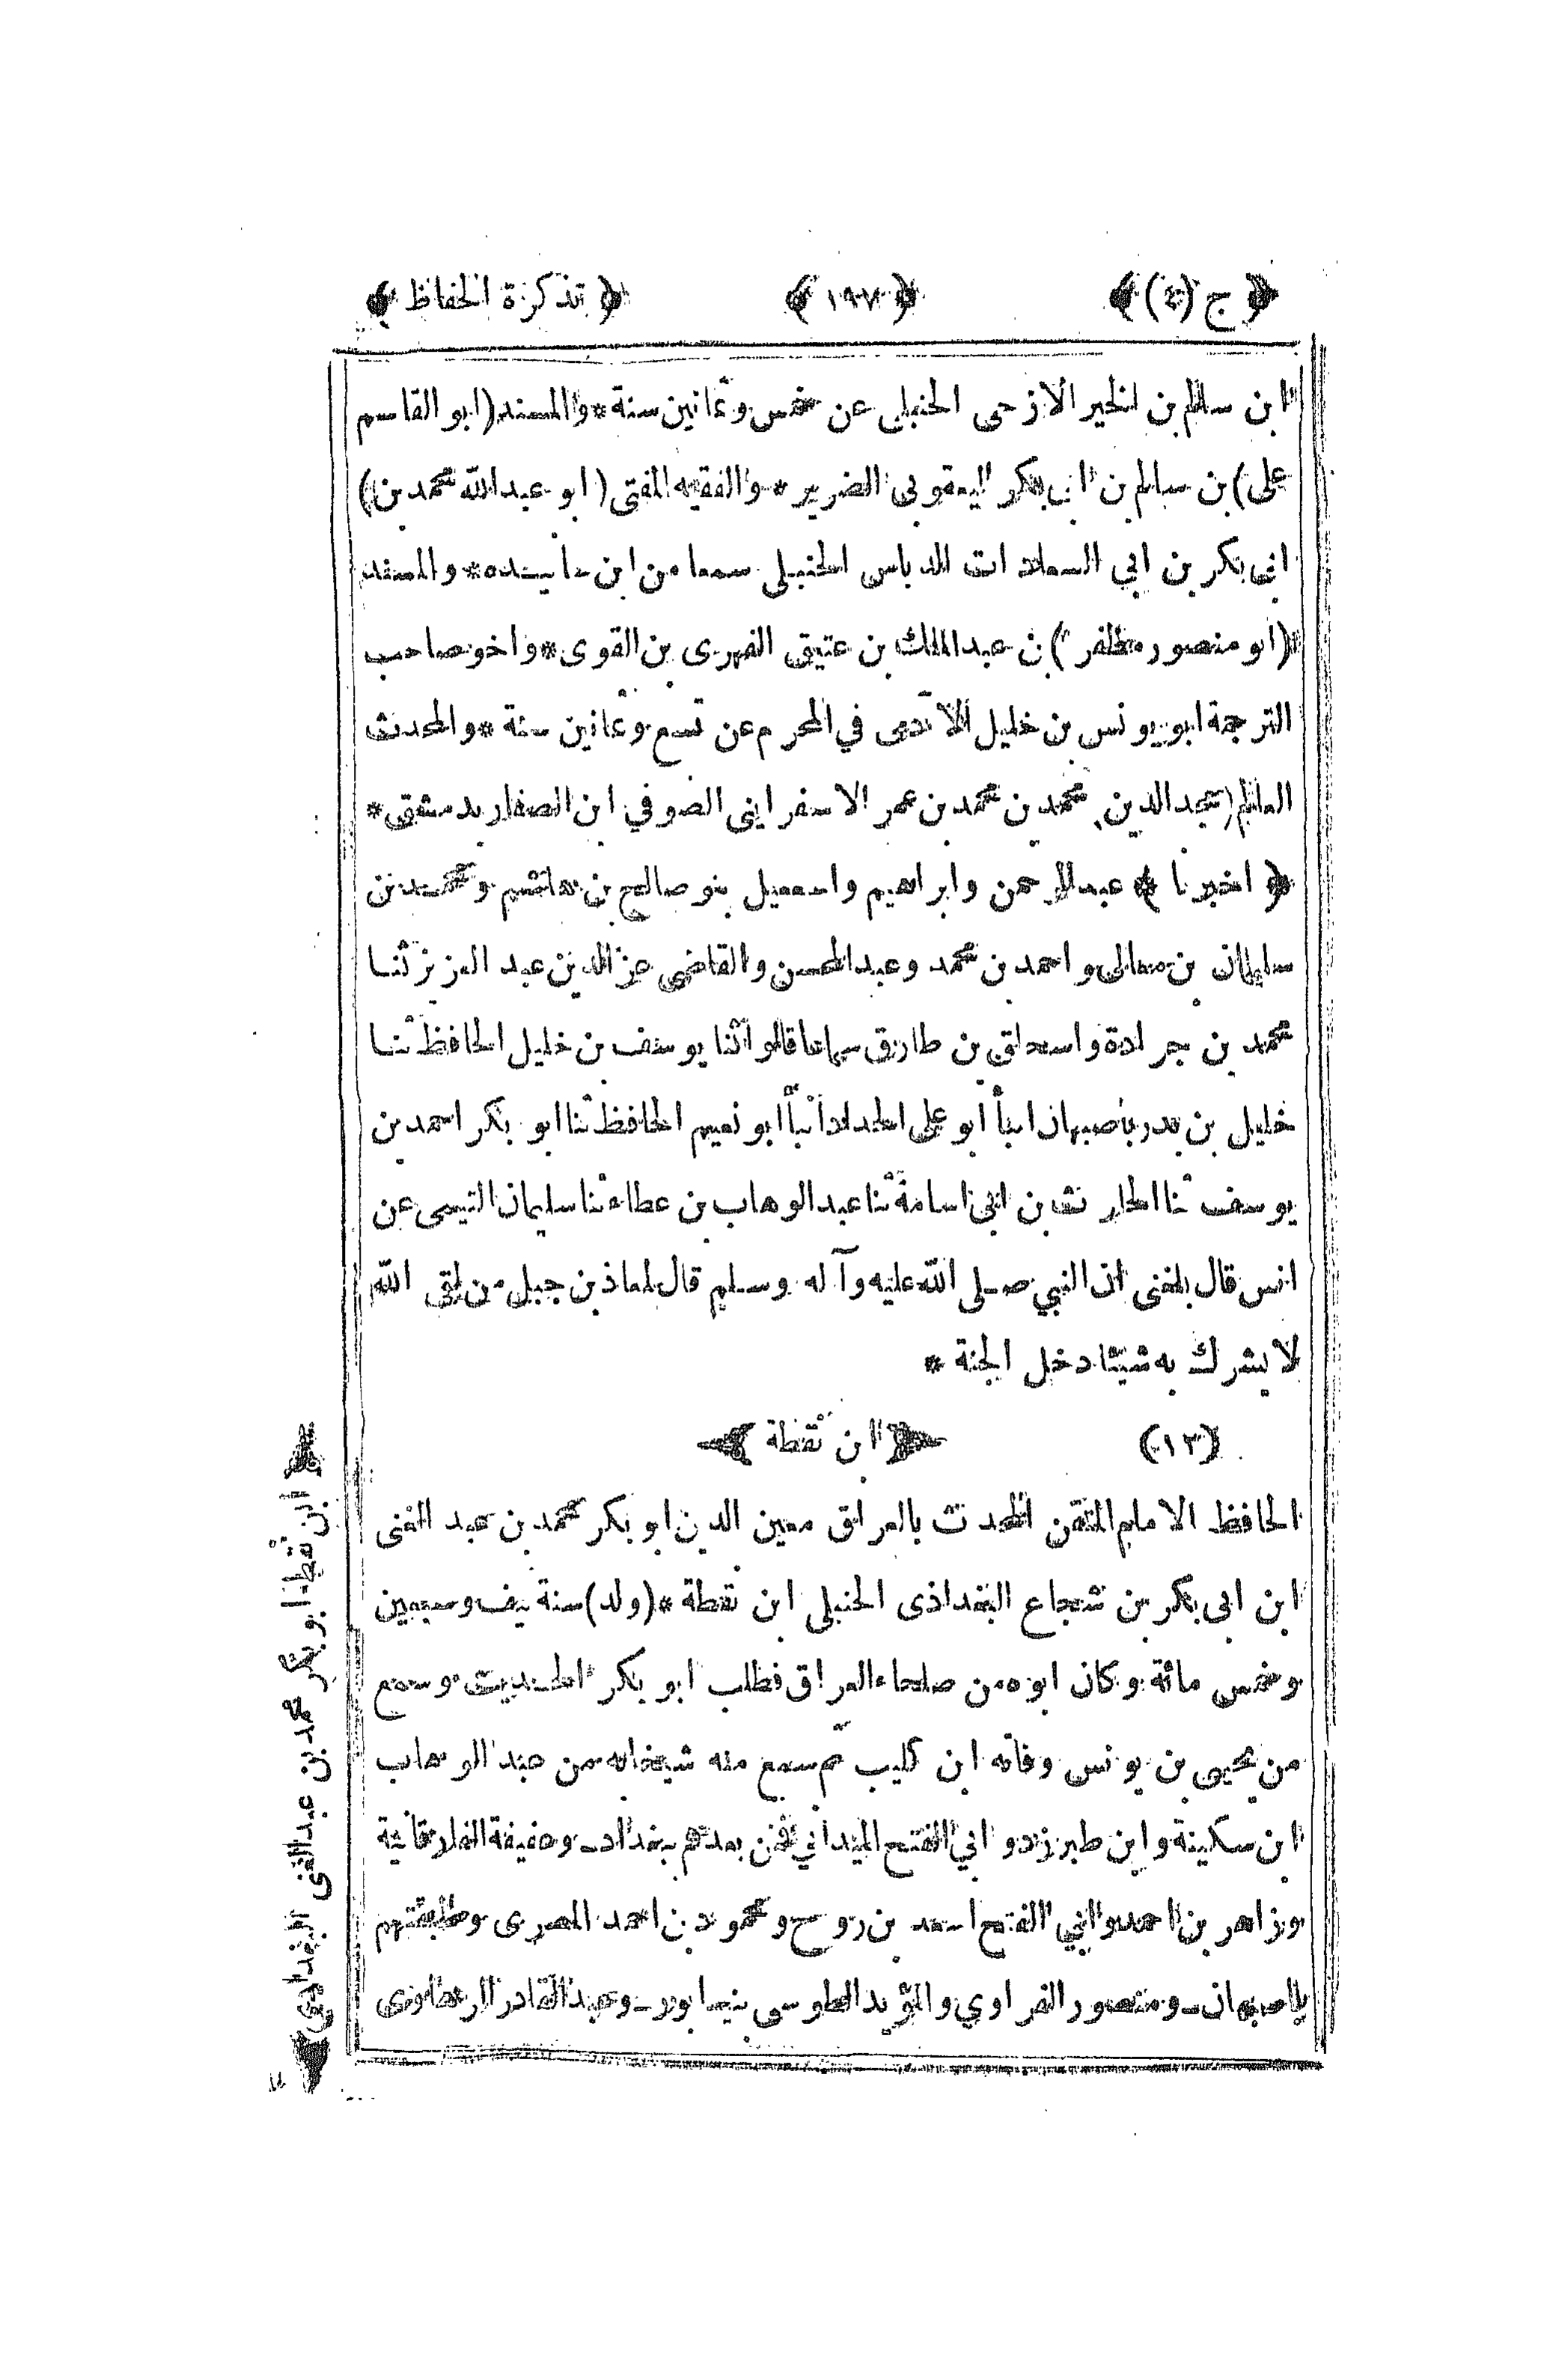 ﴿ ج (٤) ﴾ ﴿ ١٩٧ ﴾ ﴿ تذكرة الحفاظ ﴾
ابن سالم بن الخير الازجى الحنبلى عن خمس وثمانين سنة * والمسند (ابو القاسم
على) بن سالم بن ابى بكر اليعقوبى الضرير * والفقيه المفتى (ابو عبدالله محمد بن)
ابى بكر بن ابي السعادات الدباس الحنبلى سمعا من ابن * والمسند
(ابو منصور مظفر) بن عبدالملك بن عتيق الفهرى بن القوى * واخو صاحب
الترجمة ابو يونس بن خليل الآدمى في المحرم عن تسع وثمانين سنة * والمحدث
العالم (مجد الدين محمد بن محمد بن عمر الاسفراينى الصوفي ابن الصفار بدمشق *
﴿ اخبرنا ﴾ عبدالرحمن وابراهيم واسمعيل بنو صالح بن هاشم ومحمد بن
سليمان بن معالى واحمد بن محمد وعبدالمحسن والقاضى عز الدين عبد العزيز ثنا
محمد بن جرادة واسحاق بن طارق سماعا قالوا ثنا يوسف بن خليل الحافظ ثنا
خليل بن بدر باصبهان انبأ ابو على الحداد انبأ ابو نعيم الحافظ ثنا ابو بكر احمد بن
يوسف ثنا الحارث بن ابى اسامة ثنا عبدالوهاب بن عطاء ثنا سليمان التيمى عن
انس قال بلغنى ان النبي صلى الله عليه وآله وسلم قال لمعاذ بن جبل من لقى الله
لا يشرك به شيئا دخل الجنة *
(١٣) ابن نقطة
الحافظ الامام المتقن المحدث بالعراق معين الدين ابو بكر محمد بن عبد الغنى
ابن ابى بكر بن شجاع البغداذى الحنبلى ابن نقطة * (ولد) سنة نيف وسبعين
وخمس مائة وكان ابوه من صلحاء العراق فطلب ابو بكر الحديث وسمع
من يحيى بن يونس وفاته ابن كليب ثم سمع منه شيخانه من عبد الوهاب
ابن سكينة وابن طبرزد وابي الفتح الميدانى فمن بعدهم ببغداد ـ وعفيفة الفارقانية
وزاهر بن احمد وابي الفتح اسعد بن روح ومحمود بن احمد المصرى وطبقتهم
باصبهان ـ ومنصور الفراوي والمؤيد الطوسى بنيسابور ـ وعبد القادر الرهاوى
ابن نقطة ابو بكر محمد بن عبدالغنى البغدادى